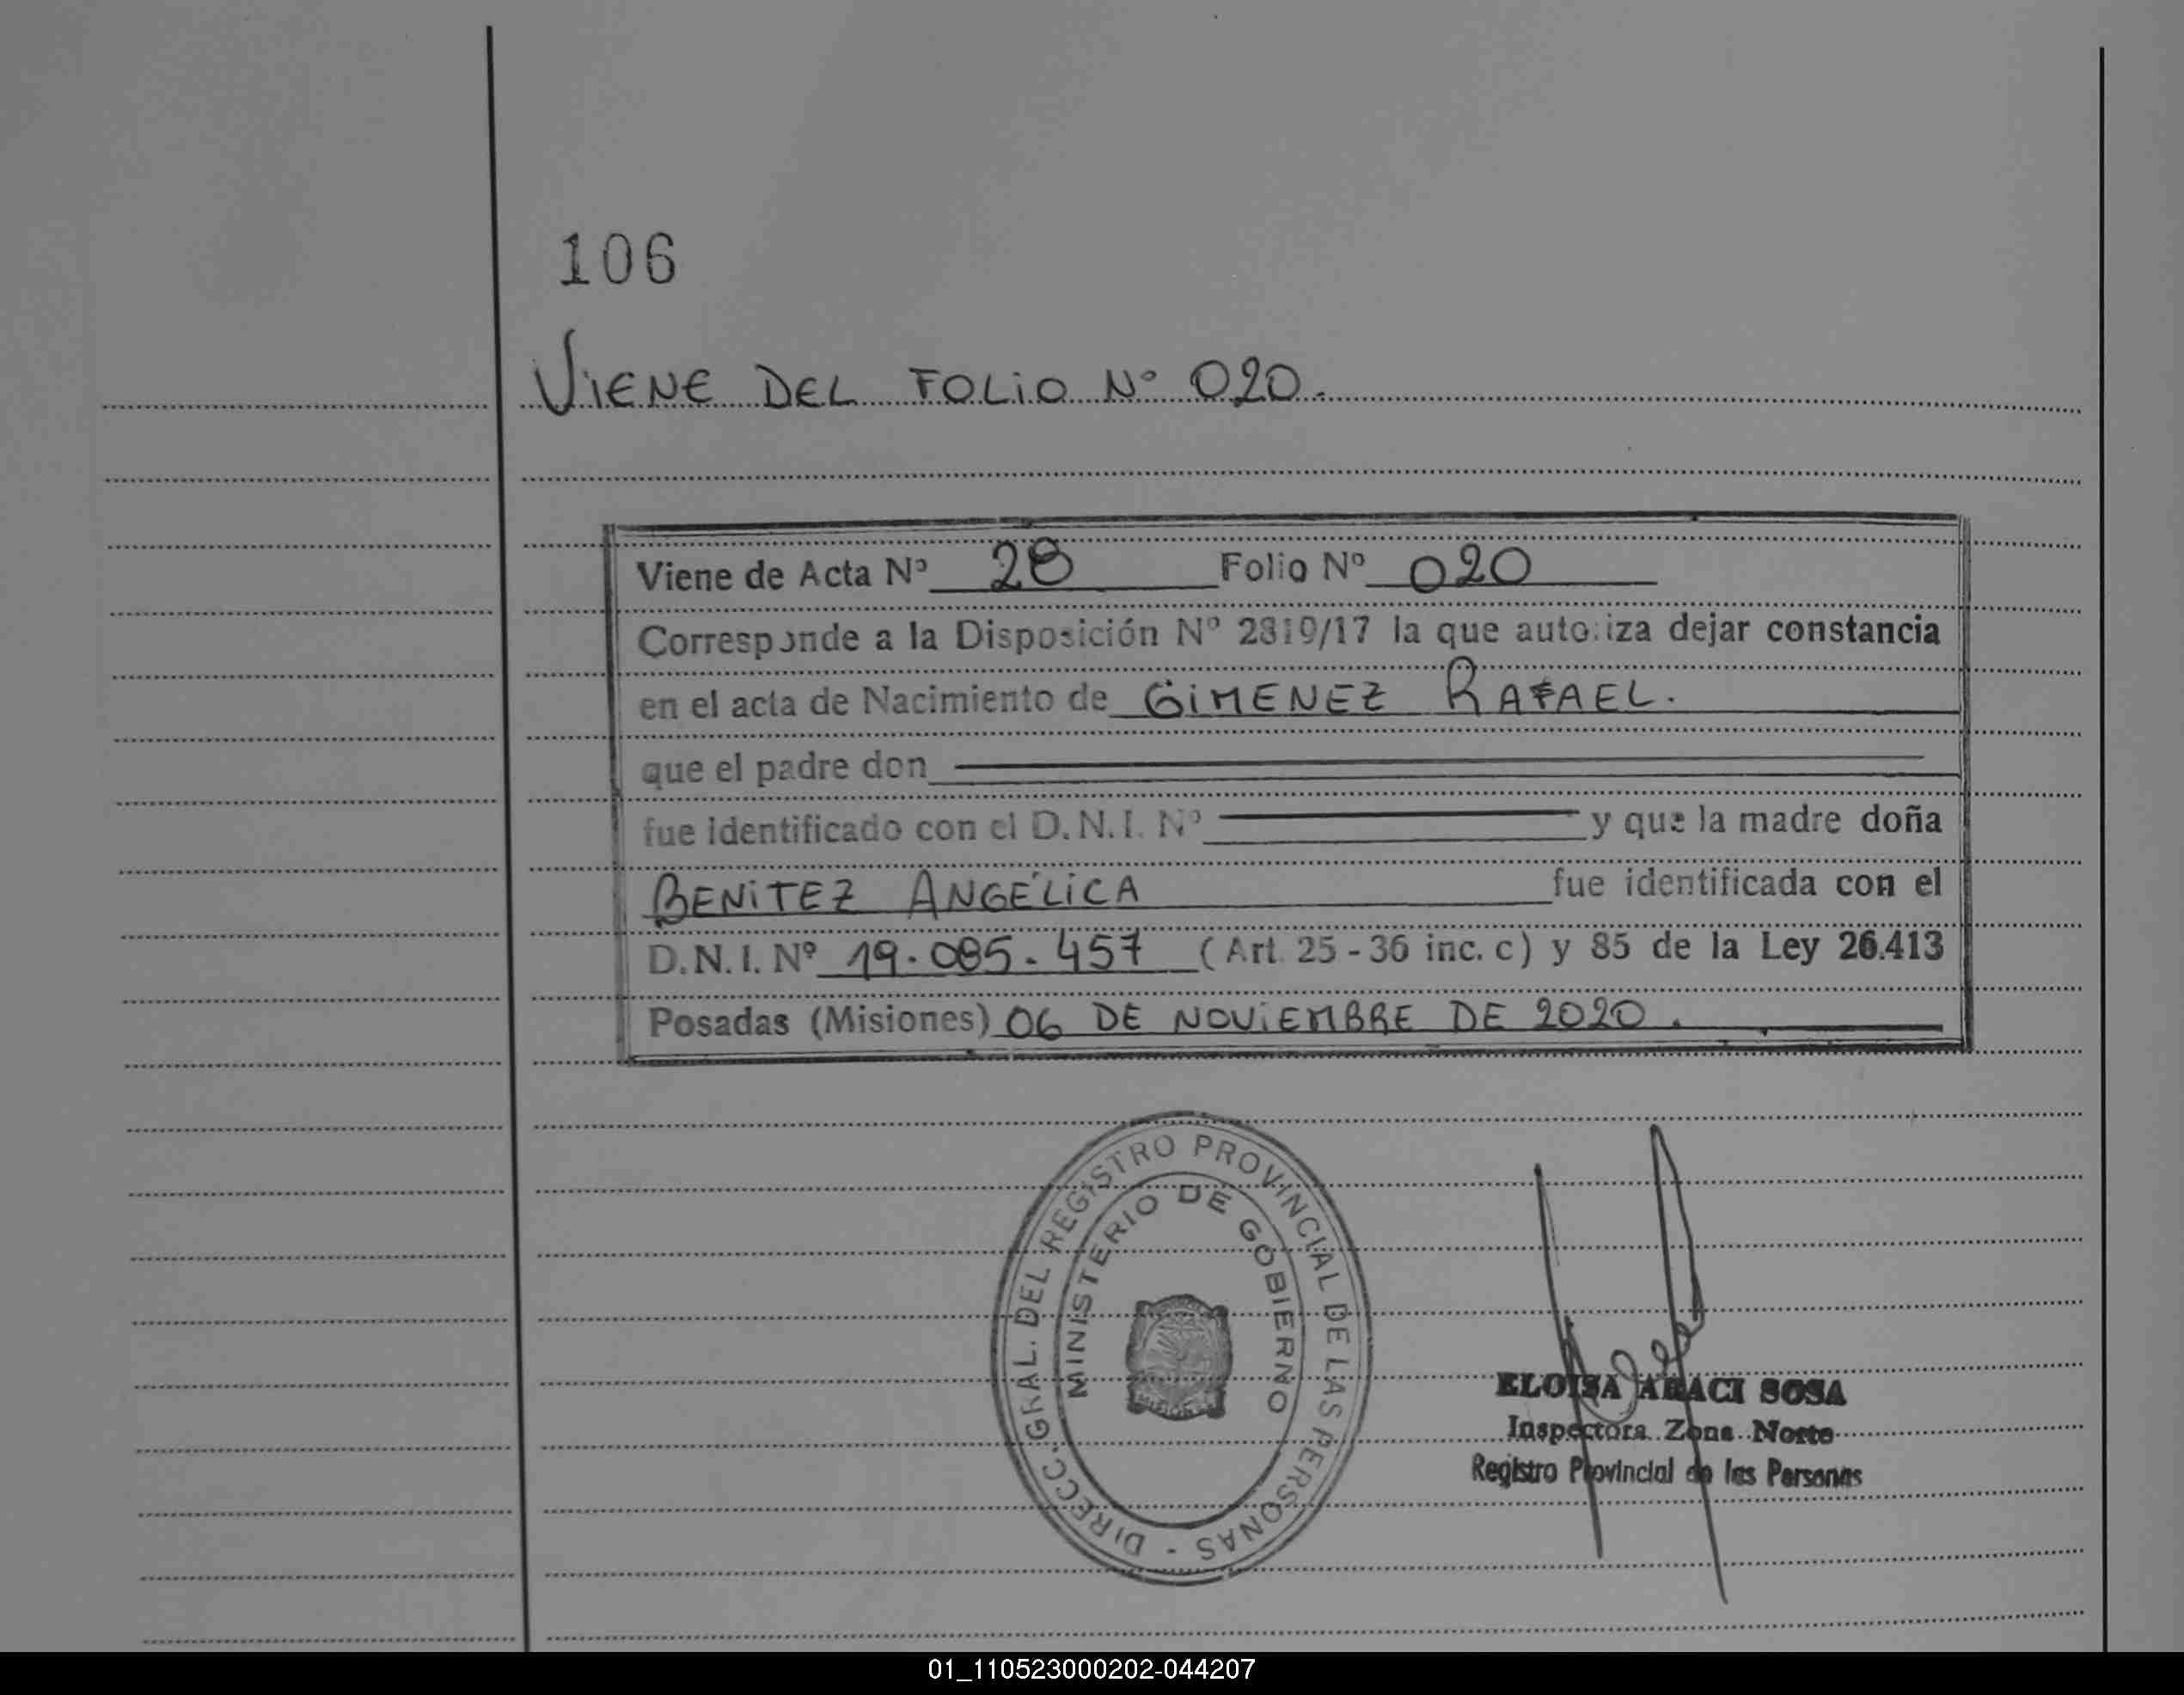 106
VIENE DEL FOLIO Nº 020.
Viene de Acta Nº 28 Folio Nº 020
Corresponde a la Disposición Nº 2819/17 la que autoriza dejar constancia
en el acta de Nacimiento de GIMENEZ RAFAEL.
que el padre don
fue identificado con el D.N.I. Nº y que la madre doña
BENITEZ ANGÉLICA fue identificada con el
D.N.I. Nº 19.085.457 (Art. 25 - 36 inc. c) y 85 de la Ley 26.413
Posadas (Misiones) 06 DE NOVIEMBRE DE 2020.
DIRECC. GRAL. DEL REGISTRO PROVINCIAL DE LAS PERSONAS -
MINISTERIO DE GOBIERNO
MISIONES
ELOISA ARACI SOSA
Inspectora Zona Norte
Registro Provincial de las Personas
01_110523000202-044207